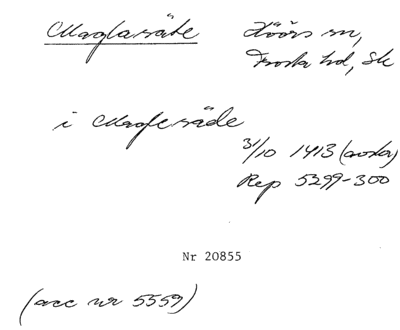 Maglasäte Höörs sn,
Frosta hd, Sk
i Maglesäde
31/10 1413 (avskr)
Rep 5299-300
Nr 20855
(acc nr 5559)